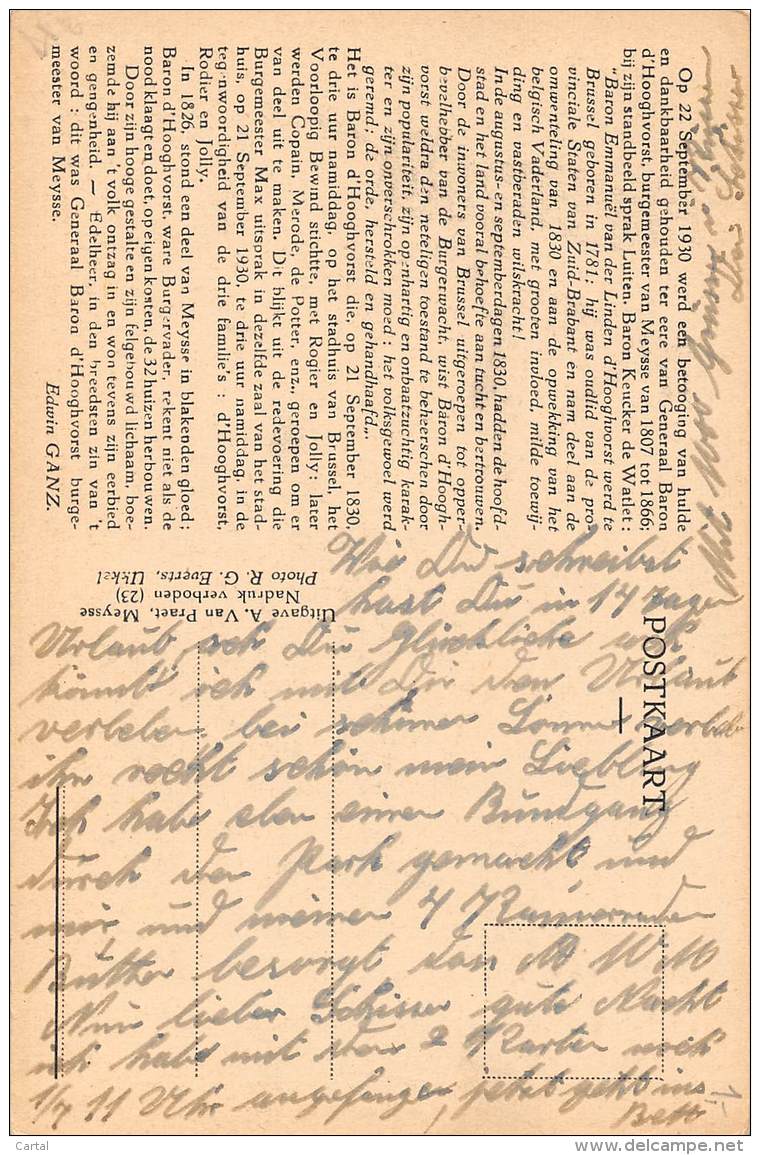 Op 22 September 1930 werd een betooging van hulde
en dankbaarheid gehouden ter eere van Generaal Baron
d'Hooghvorst, burgemeester van Meysse van 1807 tot 1866;
bij zijn standbeeld sprak Luiten. Baron Keucker de Watlet :
"Baron Emmanuël van der Linden d'Hooghvorst werd te
Brussel geboren in 1781; hij was oudlid van de pro-
vinciale Staten van Zuid-Brabant en nam deel aan de
omwenteling van 1830 en aan de opwekking van het
belgisch Vaderland, met grooten invloed, milde toewij-
ding en vastberaden wilskracht!
In de augustus- en septemberdagen 1830, hadden de hoofd-
stad en het land vooral behoefte aan tucht en bertrouwen.
Door de inwoners van Brussel uitgeroepen tot opper-
bevelhebber van de Burgerwacht, wist Baron d'Hoogh-
vorst weldra den neteligen toestand te beheerschen door
zijn populariteit, zijn openhartig en onbaatzuchtig karak-
ter en zijn onverschrokken moed : het volksgewoel werd
geremd; de orde, hersteld en gehandhaafd...
Het is Baron d'Hooghvorst die, op 21 September 1830,
te drie uur namiddag, op het stadhuis van Brussel, het
Voorloopig Bewind stichte, met Rogier en Jolly; later
werden Copain, Merode, de Potter, enz., geroepen om er
van deel uit te maken. Dit blijkt uit de redevoering die
Burgemeester Max uitsprak in dezelfde zaal van het stad-
huis, op 21 September 1930, te drie uur namiddag, in de
tegenwoordigheid van de drie familie's : d'Hooghvorst,
Rodier en Jolly.
In 1826, stond een deel van Meysse in blakenden gloed;
Baron d'Hooghvorst, ware Burgervader, rekent niet als de
nood klaagt en doet, op eigen kosten, de 32 huizen herbouwen.
Door zijn hooge gestalte en zijn felgebouwd lichaam, boe-
zemde hij aan 't volk ontzag in en won tevens zijn eerbied
en gengenheid. — Edelheer, in den breedsten zin van 't
woord : dit was Generaal Baron d'Hooghvorst burge-
meester van Meysse.
Edwin GANZ.
Uitgave A. Van Praet, Meysse
Nadruk verboden (23)
Photo R. G. Everts, Ukkel
POSTKAART
Wie Du schreibst
hast Du in 14 Tagen
Urlaub ach Du Glückliche ach
könnt ich mit Dir den Urlaub
verleben bei schönem Sommerwetter
ihn recht schön mein Liebling
Ich habe eben einen Rundgang
durch den Park gemacht und
mir und meinen 4 Kameraden
Butter besorgt das
Nun lieber gute Nacht
ich habe mit den 2 Karten noch
1/2 11 Uhr angefangen, jetzt geht ins
Bett
Cartal
www.delcampe.net